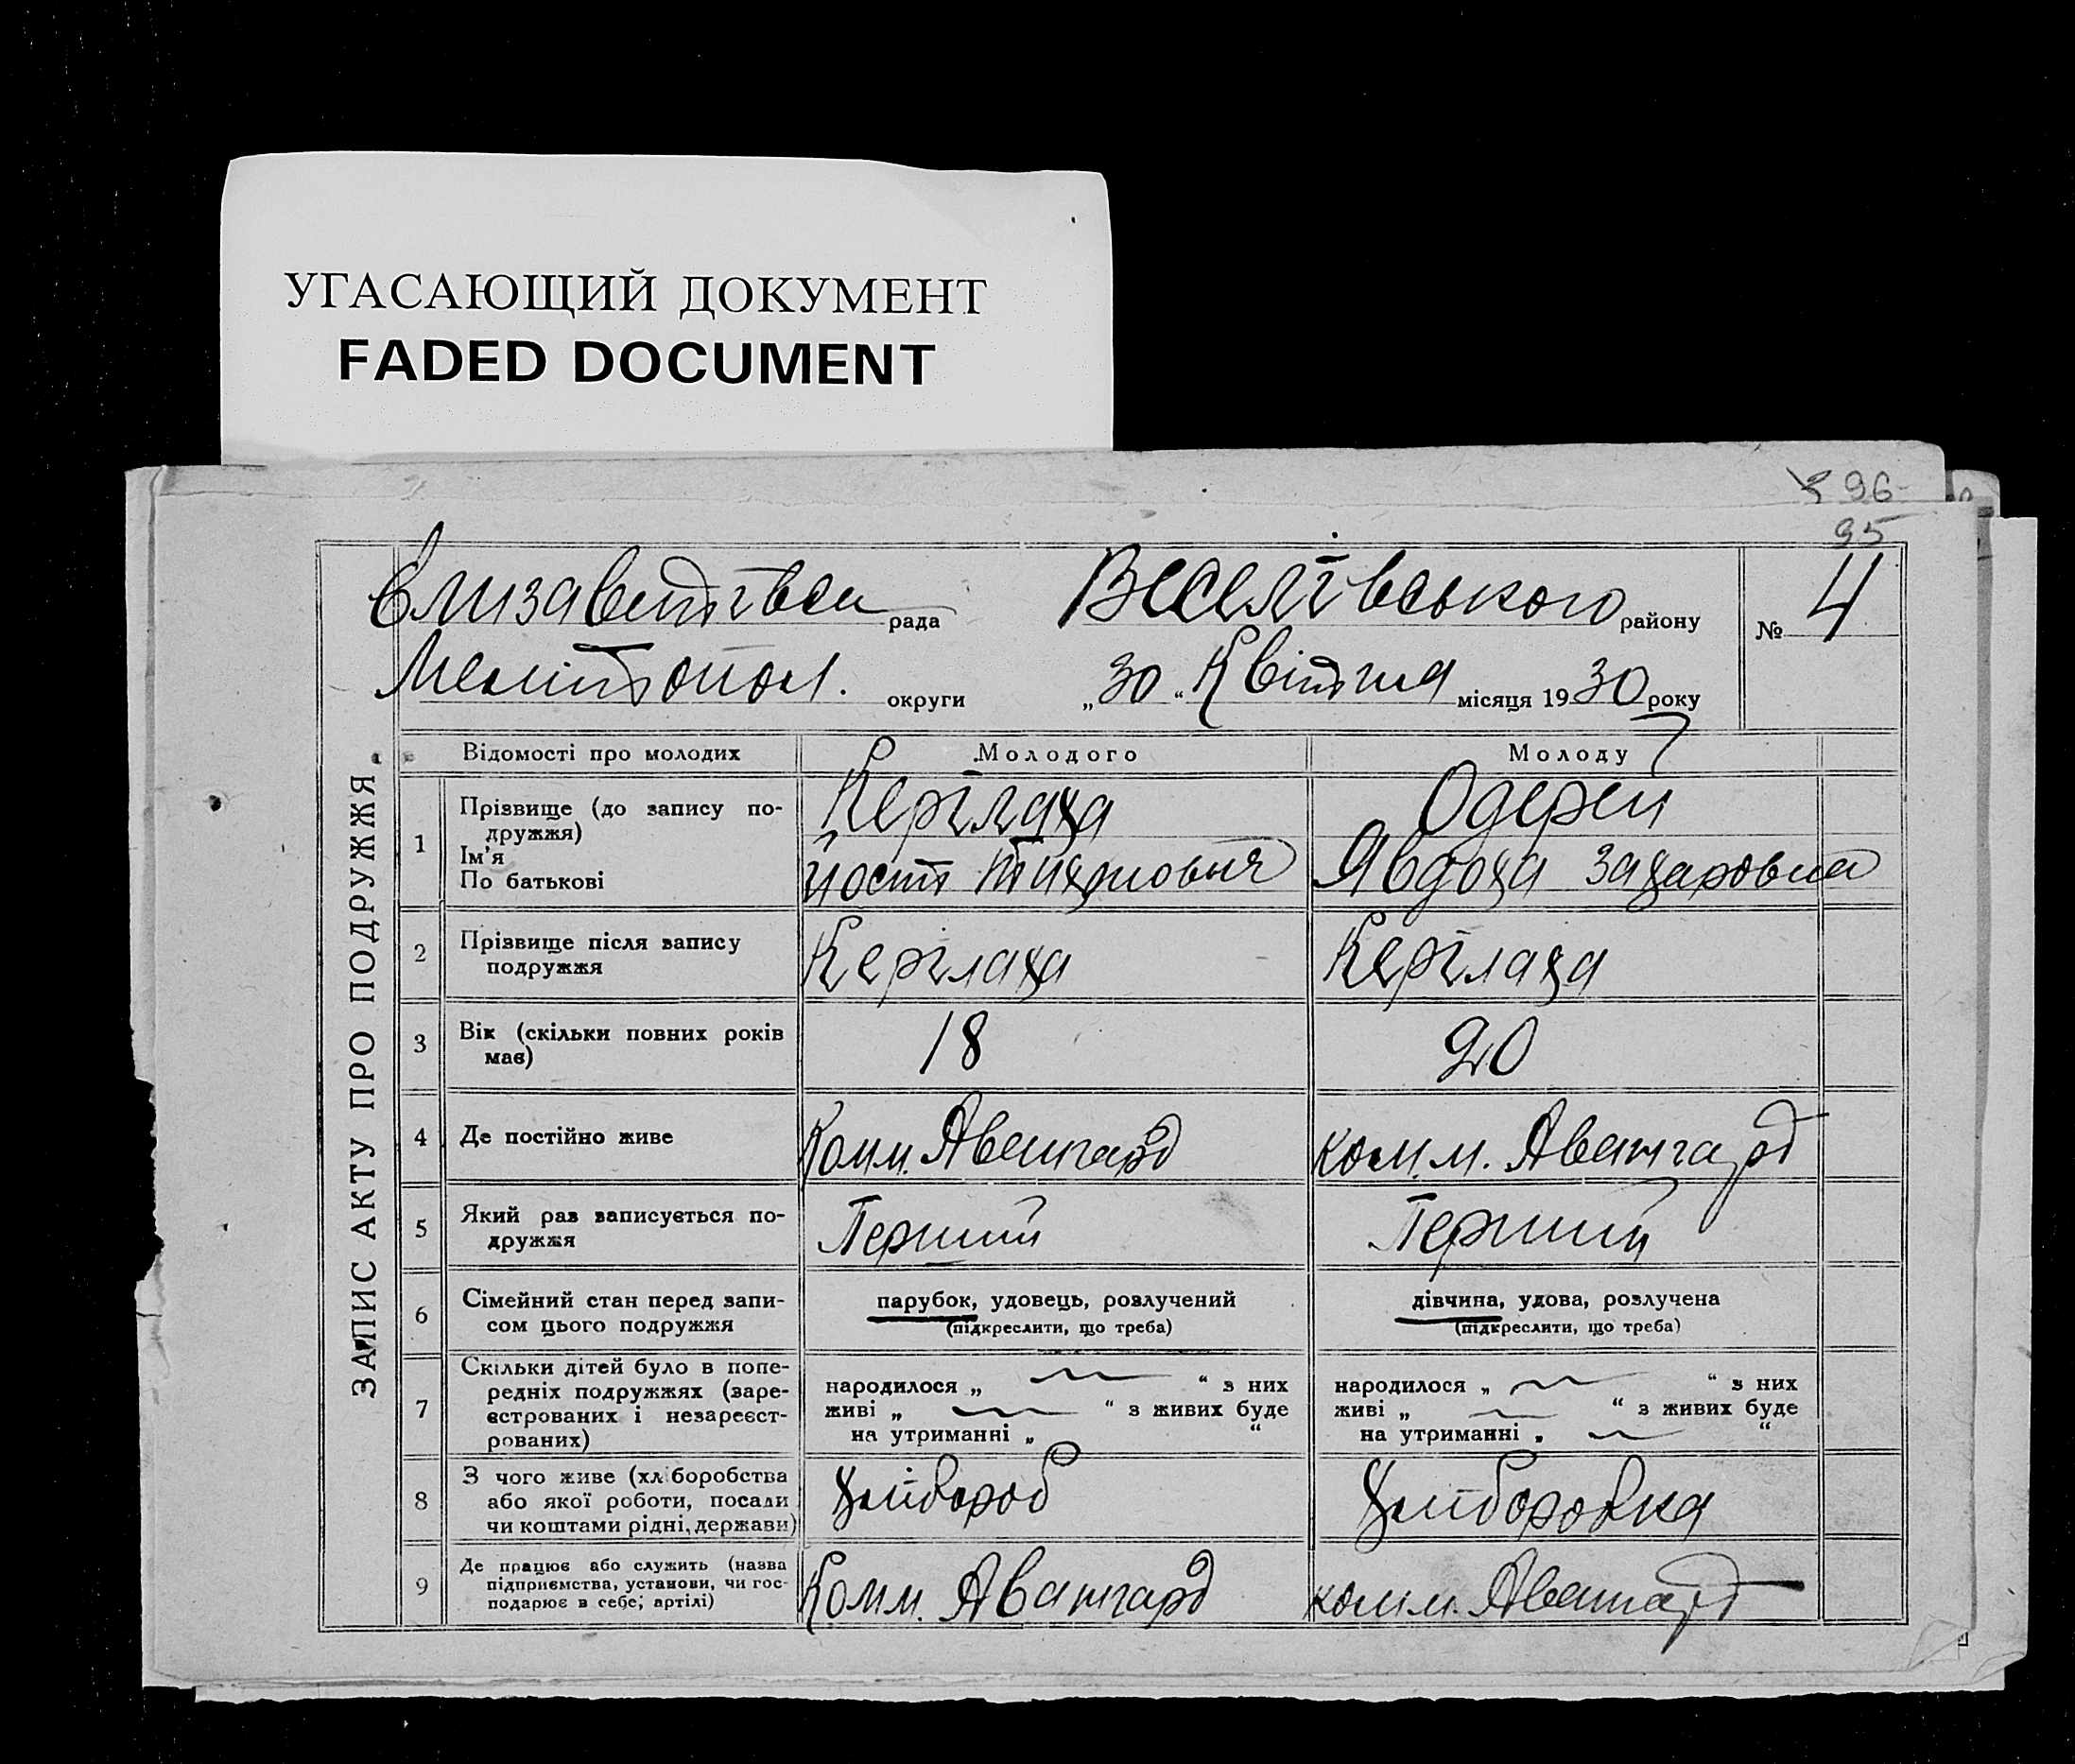 УГАСАЮЩИЙ ДОКУМЕНТ
FADED DOCUMENT
96
95
Єлизаветівськ рада Веселівського району № 4
Мелітопол. округи „30“ Квітня місяця 1930 року
ЗАПИС АКТУ ПРО ПОДРУЖЖЯ.
Відомості про молодих Молодого Молоду
1 Прізвище (до запису подружжя) Керілаха Одерей
Ім'я
По батькові Йост Явдоха Захаровна
2 Прізвище після запису Керілаха Керілаха
подружжя
3 Вік (скільки повних років 18 20
має)
4 Де постійно живе Комм. Авангард комм. Авангард
5 Який раз записується по- Перший Перший
дружжя
6 Сімейний стан перед запи- парубок, удовець, розлучений дівчина, удова, розлучена
сом цього подружжя (підкреслити, що треба) (підкреслити, що треба)
7 Скільки дітей було в попе- народилося „ “ з них народилося „ “ з них
редніх подружжях (заре- живі „ “ з живих буде живі „ “ з живих буде
єстрованих і незареєст- на утриманні „ “ на утриманні „ “
рованих)
8 З чого живе (хліборобства Хлібороб Хлiборобка
або якої роботи, посади
чи коштами рідні, держави)
9 Де працює або служить (назва Комм. Авангард комм. Авангард
підприємства, установи, чи гос-
подарює в себе, артілі)